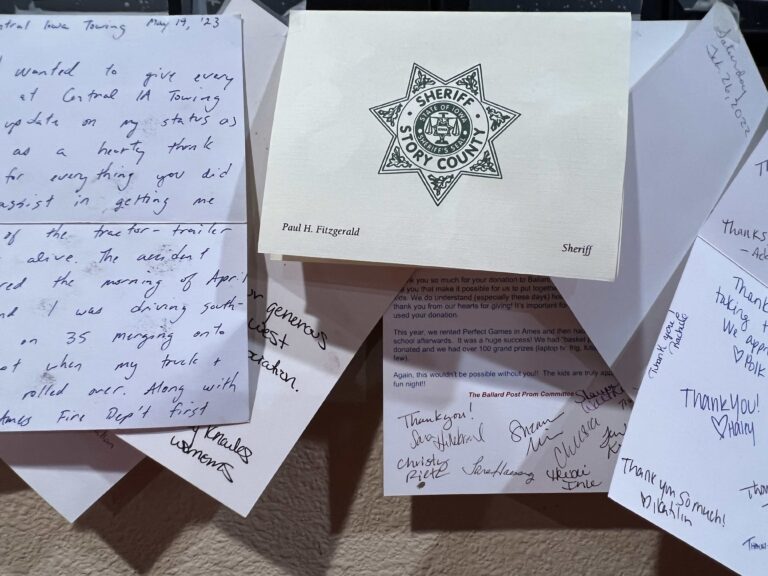 entral Iowa Towing May 19, '23
wanted to give every
at Central IA Towing
update on my status as
as a hearty thank
for everything you did
assist in getting me
of the tractor-trailer
alive. The accident
red the morning of April
nd I was driving south-
on 35 merging onto
ot when my truck +
rolled over. Along with
Ames Fire Dep't first
generous
West
ociation.
SHERIFF
STATE OF IOWA
SHERIFF'S SEAL
STORY COUNTY
Paul H. Fitzgerald
Sheriff
Saturday
Feb 26, 2022
k you so much for your donation to Ballard
you that make it possible for us to put together
ids. We do understand (especially these days) ho
thank you from our hearts for giving! It's important fo
used your donation.
This year, we rented Perfect Games in Ames and then ha
school afterwards. It was a huge success! We had "basket
donated and we had over 100 grand prizes (laptop, tv, frig, Xbo
few).
Again, this wouldn't be possible without you!! The kids are truly app
fun night!!
The Ballard Post Prom Committee
Thank you!
Christy
Chelsea
Thanks
Thank
taking t
We appr
♡ Polk
Thank you!
Rachelle
THANK YOU!
♡ Haley
Thank you so much!
♡ Kaitlin